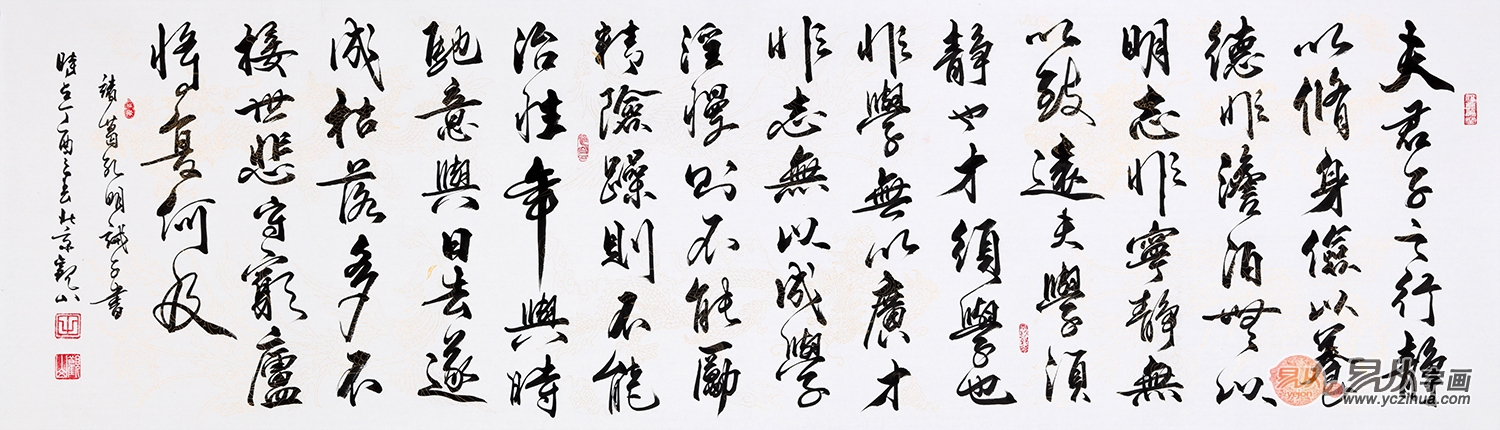 夫君子之行靜
以脩身儉以養
德非澹泊無以
明志非寧靜無
以致遠夫學須
靜也才須學也
非學無以廣才
非志無以成學
淫慢則不能勵
精險躁則不能
治性年與時
馳意與日去遂
成枯落多不
接世悲守窮廬
將復何及
諸葛孔明誡子書
時在丁酉之北京觀山
易从字画
www.yczihua.com